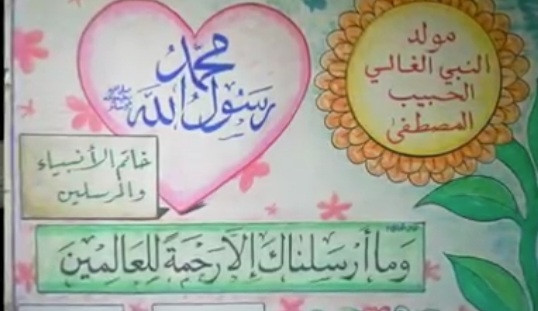 مولد
النبي الغالي
الحبيب
المصطفى
محمد
رسول الله
خاتم الأنبياء
والمرسلين
وَمَا أَرْسَلْنَاكَ إِلَّا رَحْمَةً لِلْعَالَمِينَ